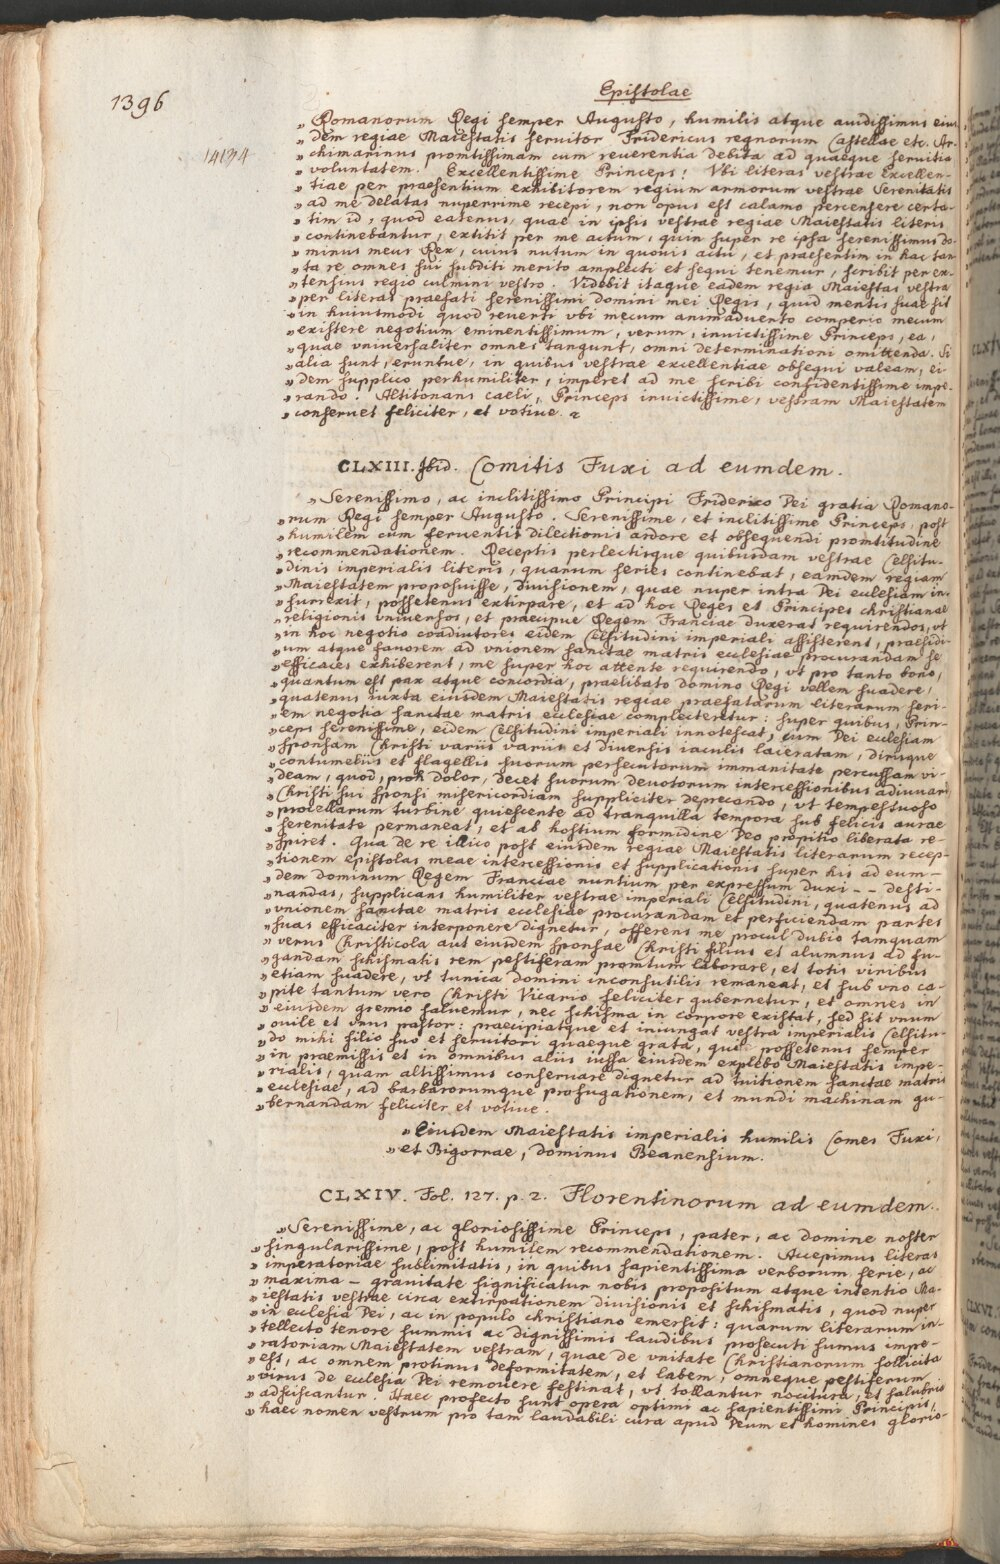 1396
Epistolae
„ Romanorum Regi semper Augusto, humilis atque auidissimus eius-
„ dem regiae Maiestatis seruitor Fridericus regnorum Castellae etc. Ar-
14134
„ chimarinus promtissimam cum reuerentia debita ad quaeque seruitia
„ voluntatem. Excellentissime Princeps! Vbi literas vestrae Excellen-
„ tiae per praesentium exhibitorem regium armorum vestrae Serenitatis
„ ad me delatas nuperrime recepi, non opus est calamo percensere certa-
„ tim id, quod eatenus, quae in ipsis vestrae regiae Maiestatis literis
„ continebantur, extitit per me actum, quin super re ipsa serenissimus do-
„ minus meus Rex, cuius nutum in quouis actu, et praesentim in hac tan-
„ ta re omnes sui subditi merito amplecti et sequi tenemur, scribit per ex-
„ tensius regio culmini vestro. Videbit itaque eadem regia Maiestas vestra
„ per literas praefati serenissimi domini mei Regis, quid mentis suae sit
„ in huiusmodi quod reuerti vbi mecum animaduerto comperio mecum
„ existere negotium eminentissimum, verum, inuictissime Princeps, ea,
„ quae vniuersaliter omnes tangunt, omni determinationi omittenda. Si
„ alia sunt, eruntue, in quibus vestrae excellentiae obsequi valeam, ei-
„ dem supplico perhumiliter, imperet ad me scribi confidentissime impe-
„ rando. Altitonans caeli, Princeps inuictissime, vestram Maiestatem
„ conseruet feliciter, et votiue.
CLXIII. Ibid. Comitis Fuxi ad eumdem.
„ Serenissimo, ac inclitissimo Principi Friderico Dei gratia Romano-
„ rum Regi semper Augusto. Serenissime, et inclitissime Princeps, post
„ humilem cum feruentis dilectionis ardore et obsequendi promtitudine
„ recommendationem. Receptis perlectisque quibusdam vestrae Celsitu-
„ dinis imperialis literis, quarum series continebat, eamdem regiam
„ Maiestatem proposuisse, diuisionem, quae nuper intra Dei ecclesiam in-
„ surrexit, possetenus extirpare, et ad hoc Reges et Principes christianae
„ religionis vniuersos, et praecipue Regem Franciae duxerat requirendos, vt
„ in hoc negotio coadiutores eidem Celsitudini imperiali assisterent, praesidi-
„ um atque fauorem ad vnionem sanctae matris ecclesiae procurandam se
„ efficaces exhiberent, me super hoc attente requirendo, vt pro tanto bono,
„ quantum est pax atque concordia, praelibato domino Regi vellem suadere,
„ quatenus iuxta eiusdem Maiestatis regiae praefatarum literarum seri-
„ em negotia sanctae matris ecclesiae complecteretur: super quibus, Prin-
„ ceps serenissime, eidem Celsitudini imperiali innotescat, cum Dei ecclesiam
„ sponsam Christi variis variis et diuersis iaculis laceratam, dirisque
„ contumeliis et flagellis suorum persecutorum immanitate percussam vi-
„ deam, quod, proh dolor, decet suorum deuotorum intercessionibus adiuuari
„ Christi sui sponsi misericordiam suppliciter deprecando, vt tempestuoso
„ procellarum turbine quiescente ad tranquilla tempora sub felicis aurae
„ serenitate permaneat, et ab hostium formidine Deo propitio liberata re-
„ spiret. Qua de re illico post eiusdem regiae Maiestatis literarum recep-
„ tionem epistolas meae intercessionis et supplicationis super his ad eum-
„ dem dominum Regem Franciae nuntium per expressum duxi -- desti-
„ nandas, supplicans humiliter vestrae imperiali Celsitudini, quatenus ad
„ vnionem sanctae matris ecclesiae procurandam et perficiendam partes
„ suas efficaciter interponere dignetur, offerens me procul dubio tamquam
„ verus Christicola aut eiusdem sponsae Christi filius et alumnus ad fu-
„ gandam schismatis rem pestiferam promtum laborare, et totis viribus
„ etiam suadere, vt tunica domini inconsutilis remaneat, et sub vno ca-
„ pite tantum vero Christi Vicario feliciter gubernetur, et omnes in
„ eiusdem gremio saluemur, nec schisma in corpore existat, sed sit vnum
„ ouile et vnus pastor: praecipiatque et iniungat vestra imperialis Celsitu-
„ do mihi filio suo et seruitori quaeque grata, quia possetenus semper
„ in praemissis et in omnibus aliis iussa eiusdem explebo Maiestatis impe-
„ rialis, quam altissimus conseruare dignetur ad tuitionem sanctae matris
„ ecclesiae, ad barbarorumque profugationem, et mundi machinam gu-
„ bernandam feliciter et votiue.
„ Eiusdem Maiestatis imperialis humilis Comes Fuxi,
„ et Bigorrae, Dominus Beanensium.
CLXIV. Fol. 127. p. 2. Florentinorum ad eumdem.
„ Serenissime, ac gloriosissime Princeps, pater, ac domine noster
„ singularissime, post humilem recommendationem. Accepimus literas
„ imperatoriae sublimitatis, in quibus sapientissima verborum serie, ac
„ maxima - grauitate significatur nobis propositum atque intentio Ma-
„ iestatis vestrae circa extirpationem diuisionis et schismatis, quod nuper
„ in ecclesia Dei, ac in populo christiano emersit: quarum literarum in-
„ tellecto tenore summis ac dignissimis laudibus prosecuti sumus impe-
„ ratoriam Maiestatem vestram, quae de vnitate Christianorum sollicita
„ est, ac omnem protinus deformitatem, et labem, omneque pestiferum
„ virus de ecclesia Dei remouere festinat, vt tollantur nocitura, et salubria
„ adsciscantur. Haec profecto sunt opera optimi ac sapientissimi Principis,
„ haec nomen vestrum pro tam laudabili cura apud Deum et homines glorio-